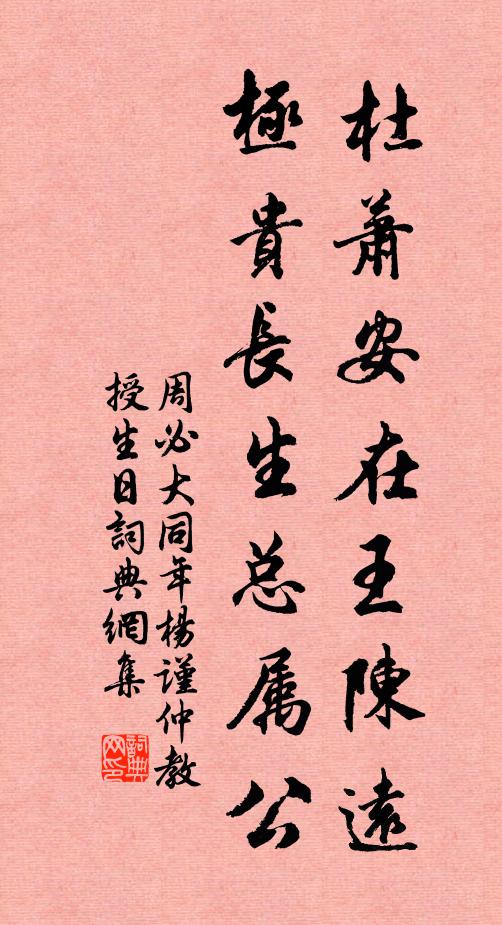 杜萧安在王陳遠
極貴長生总属公
周必大同年楊謹仲教
授生日詞典網集
詞典网印